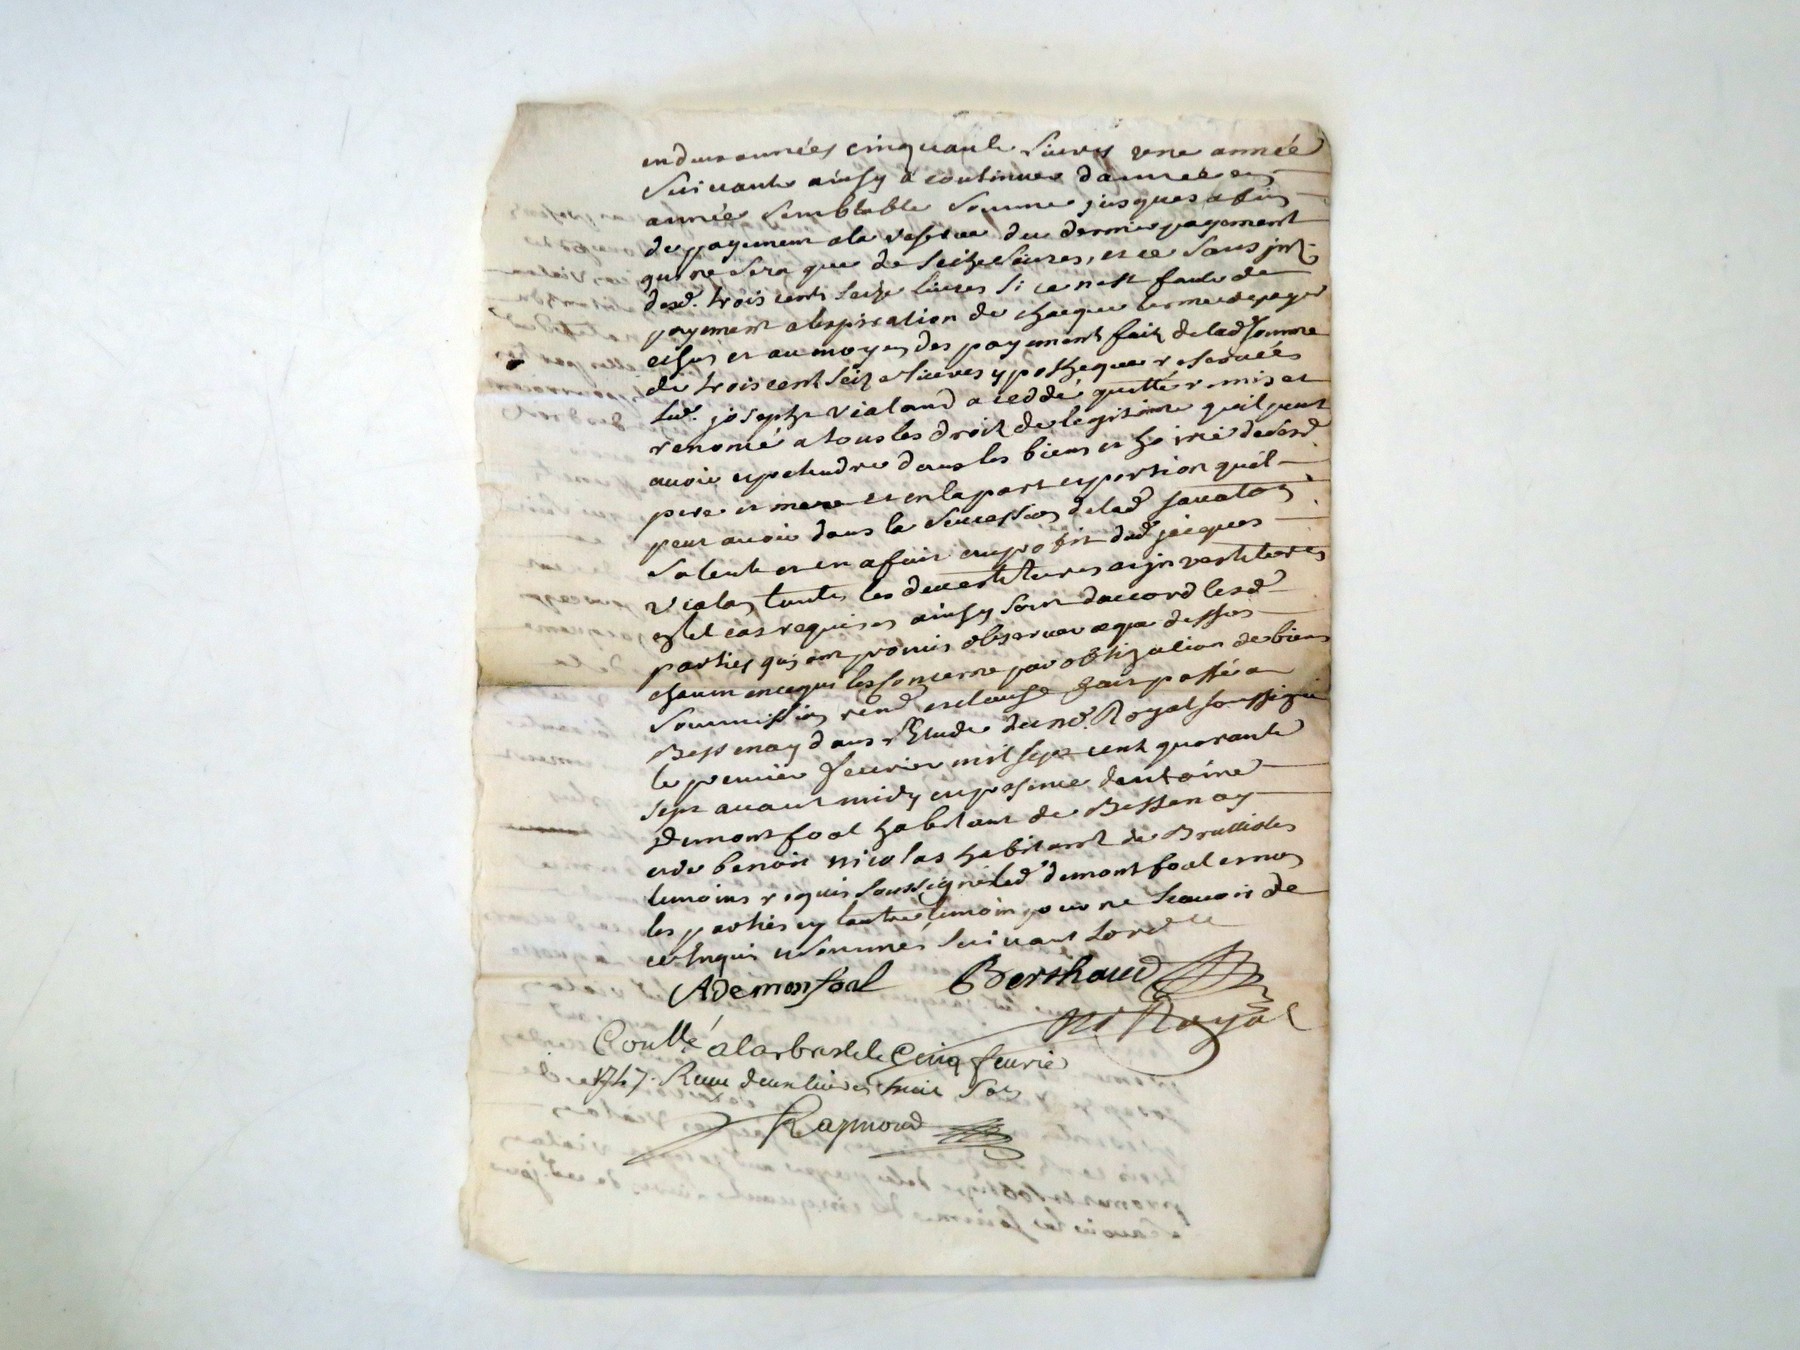 en deux années cinquante livres une année
suivante ainsy a continuer dannée en
année semblable somme jusques a fin
de payement a la reserve du dernier payement
qui ne sera que de seize livres, et ce sans jnt
desd. trois cents seize livres si ce nest faute de
payement a lexpiration de chaque terme de payer
echus et au moyen des payement fait de lad somme
de trois cent seize livres ypotheque reservées
led. joseph vialand a ceddé quitté remis et
renoncé a tous les droit de legitime quil peut
avoir et pretendre dans les biens et hoirie de sesd
pere et mere et en la part et portion quil
peut avoir dans la succession de lad
et en a fait au profit dud jacques
vialan toutes les devestitures et jnvestitures
en tel cas requises ainsy sont daccord lesd
parties qui ont promis observer ce que dessus
chacun en ce qui les concerne par obligation de biens
soummission rend et clause fait passé a
Bessenay dans l'Etude du no. Royal soussigné
le premier fevrier mil sept cent quarante
sept avant midy en presence dantoine
demontfoal habitant de Bessenay
et de benoit nicolas habitant de Brullioles
temoins requis soussigné led demontfoal et non
les parties ny lautre temoin pour ne scavoir de
ce enquis et sommés suivant lord.ce
Ademonfoal Berthaud
no Royal
Conllé a larbresle le Cinq feuvrie
1747. Receu deux livres huit Sols
Raymond